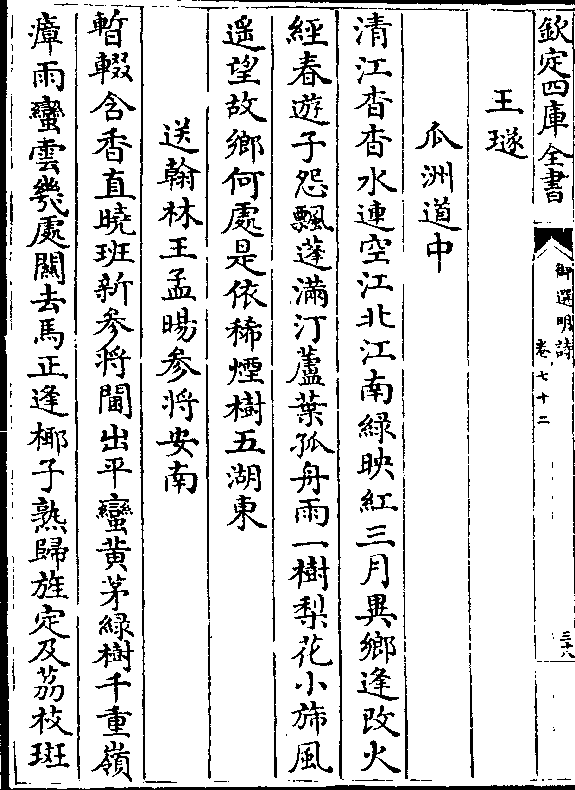 欽定四庫全書
御選明詩
卷七十二
三十八
王璲
瓜洲道中
清江杳杳水連空江北江南綠映紅三月異鄉逢改火
經春遊子怨飄蓬滿汀蘆葉孤舟雨一樹梨花小斾風
遥望故鄉何處是依稀煙樹五湖東
送翰林王孟暘參將安南
暫輟含香直曉班新參將閫出平蠻黄茅緑樹千重嶺
瘴雨蠻雲幾處關去馬正逢椰子熟歸旌定及荔枝斑